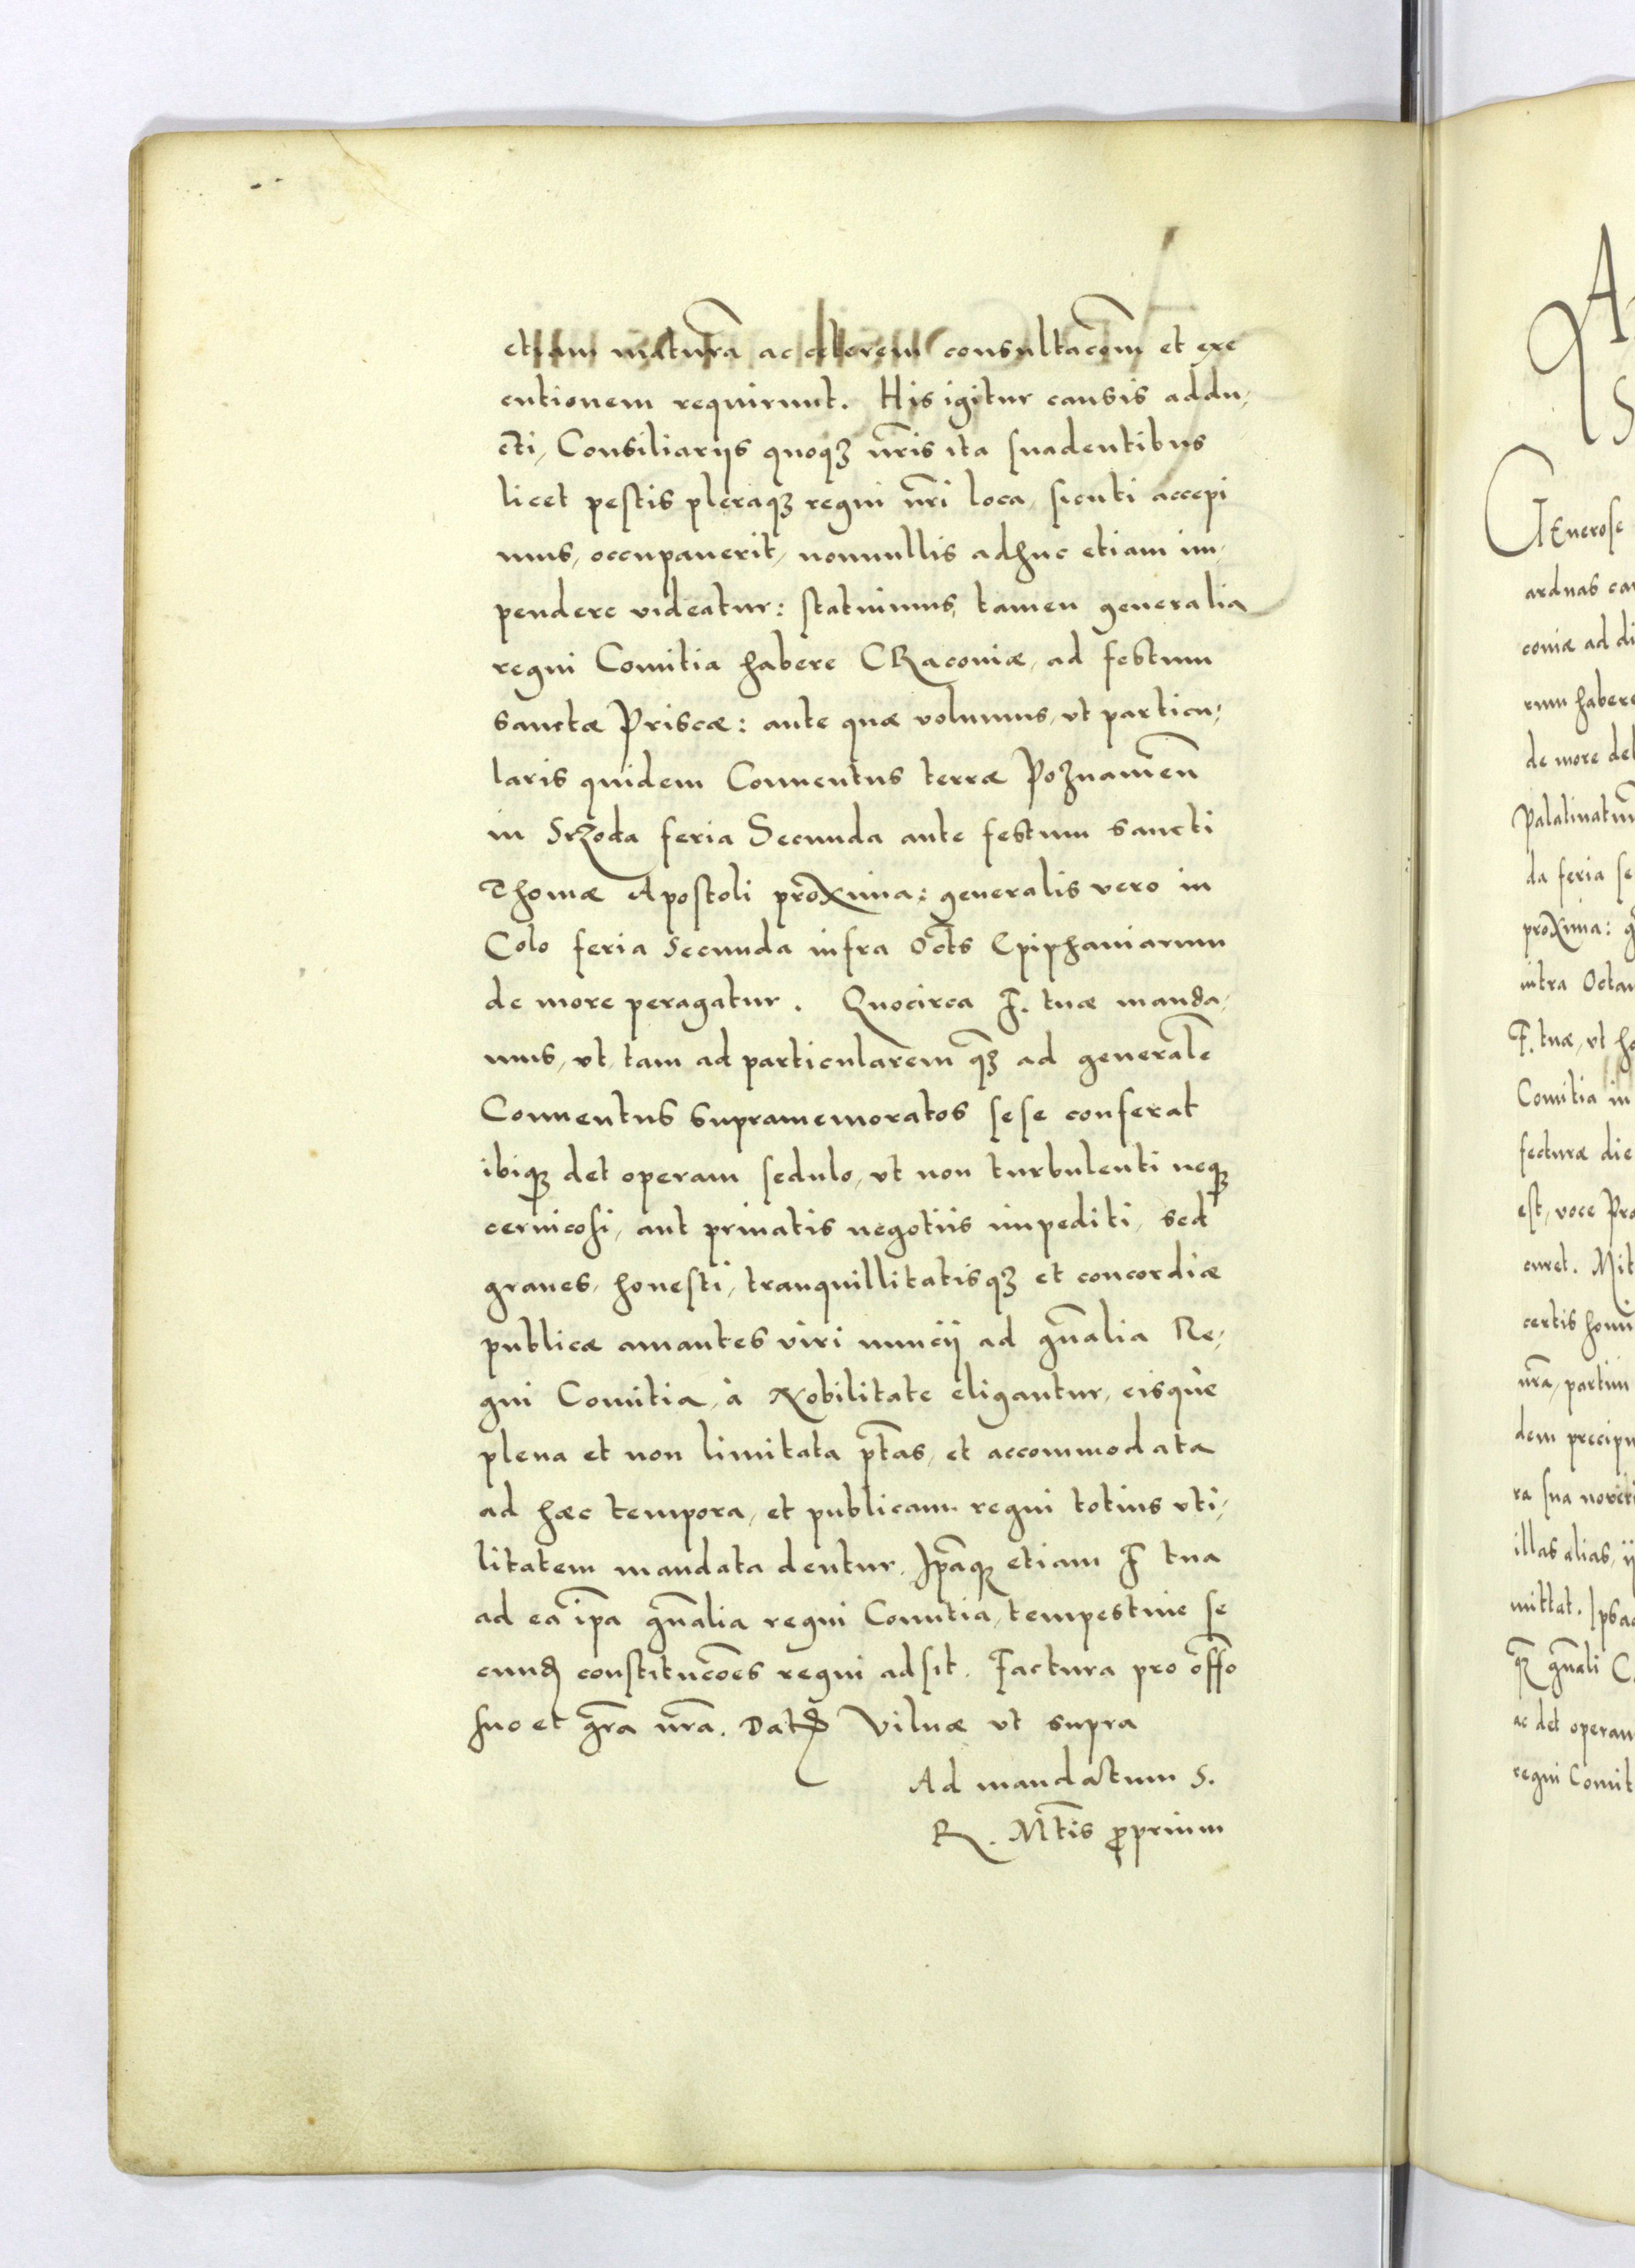 etiam matura ac celerem consultacom̃ et exe
cutionem requirunt. His igitur causis addu,
cti, Consiliariis quoqꝫ nr̃is ita suadentibus
licet pestis pleraqꝫ regni nr̃i loca, sicuti accepi
mus, occupauerit, nonnullis adhuc etiam im,
pendere videatur: statuimus, tamen generalia
regni Comitia habere CRacoviæ, ad festum
sanctæ Priscæ: ante quæ volumus, vt particu,
laris quidem Conuentus terræ Poznameñ
in Srzoda feria Secunda ante festum sancti
Thomæ Apostoli proxima: generalis vero in
Colo feria Secunda infra Oct̃s Epiphaniarum
de more peragatur. Quocirca F. tuæ manda,
mus, vt, tam ad particularem qꝫ ad generalẽ
Conuentus supramemoratos sese conferat
ibiqꝫ det operam sedulo, vt non turbulenti neqꝫ
ceruicosi, aut priuatis negotiis impediti, sed
graues, honesti, tranquillitatisqꝫ et concordiæ
publicæ amantes viri nuncij ad gñalia Re,
gni Comitia, à Nobilitate eligantur, eisque
plena et non limitata ptãs, et accommodata
ad hæc tempora, et publicam regni totius vti,
litatem mandata dentur. Ipãqꝫ etiam F tua
ad ea ip̃a gñalia regni Comitia, tempestiue se
cunđ constitucões regni adsit. Factura pro offõ
suo et gr̃a nr̃a. Dat Vilnæ vt supra
Ad mandatum S.
R. Mt̃is ꝓprium
A
S
GEnerose
arduas cau
coniæ ad di
rum habere
de more deb
Palatinatum
da feria se
proxima: g
intra Octau
F. tuæ, vt ha
Comitia in
fecturæ die
est, voce Pra
curet. Mit
certis homi
nr̃a, partim
dem precipu
ra sua noveri
illas alias, ij
mittat. Ipsa
qꝫ gñali C
ac det operam
regni Comit